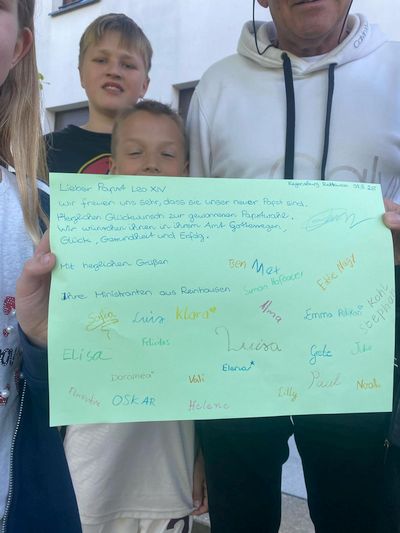 Lieber Papst Leo XIV
Regensburg Reinhausen
Wir freuen uns sehr, dass sie unser neuer Papst sind.
Herzlichen Glückwunsch zur gewonnenen Papstwahl.
Wir wünschen ihnen in ihrem Amt Gottessegen,
Glück, Gesundheit und Erfolg.
Mit herzlichen Grüßen
Ben Max
Simon
Ihre Ministranten aus Reinhausen
Sofia Luis Klara Anna Emma
Stephanie Kohl
Elisa Felicitas Luisa Greta Julia
Elena
Dorothea Vali Paul Noah
OSKAR Helene Lilly